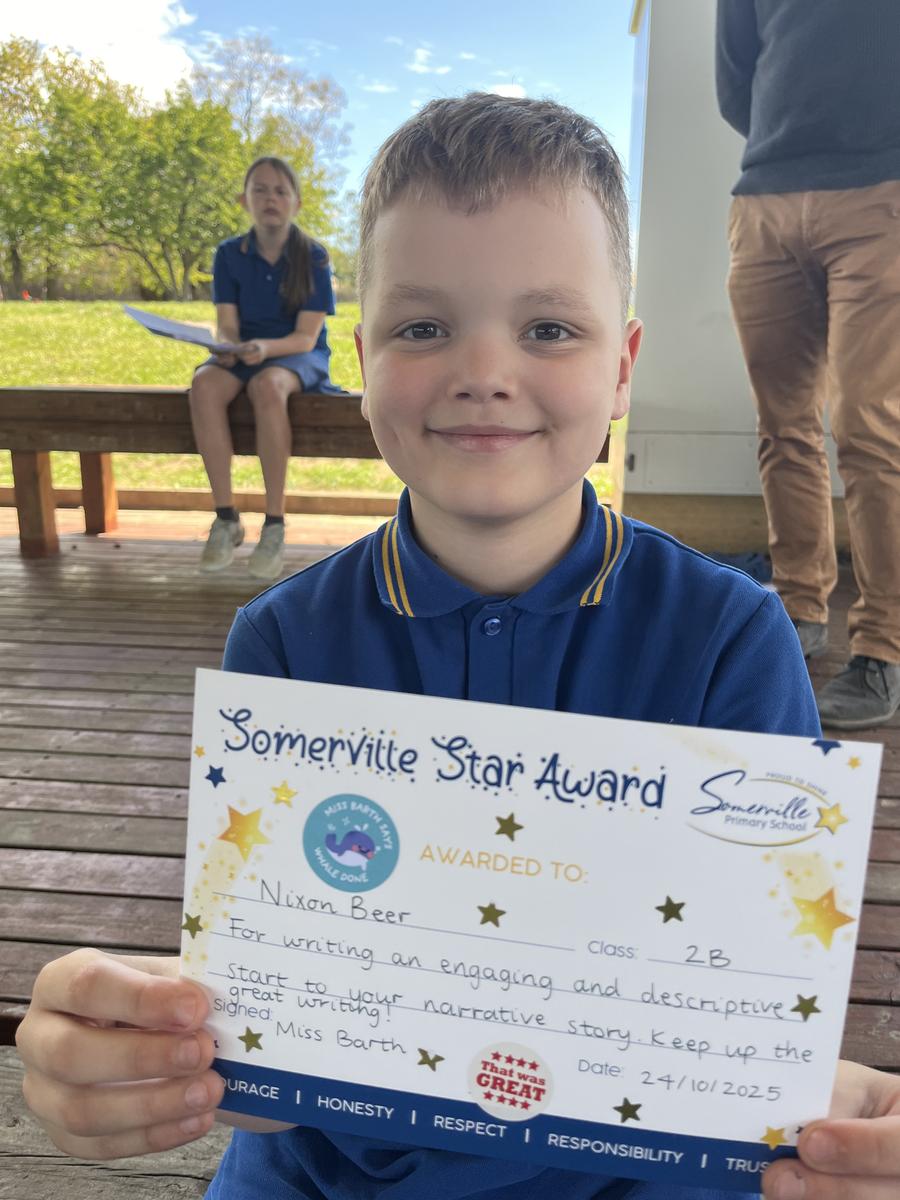 Somerville Star Award
PROUD TO SHINE
Somerville
Primary School
MISS BARTH SAYS
WHALE DONE
AWARDED TO:
Nixon Beer
Class: 2B
For writing an engaging and descriptive
start to your narrative story. Keep up the
great writing!
signed: Miss Barth
That was
GREAT
Date: 24/10/2025
OURAGE | HONESTY | RESPECT | RESPONSIBILITY | TRUS